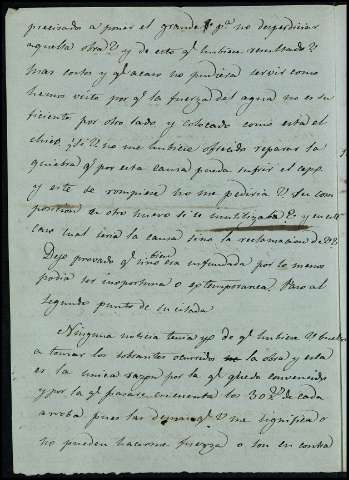 precisado a poner el grande pª no desperdiciar
aquella obra? y de esto q.^e hubiese resultado?
mas costos y q.^e acaso no pudiera servir como
hemos visto por q.^e la fuerza del agua no es su
ficiente por otro lado, y colocado como está el
chico, ¿Si V. no me hubiese ofrecido reparar la
quiebra q.^e por esta causa pueda sufrir el
y este se rompiese no me pediria V. su com
posicion u otro nuevo si se inutilizaba? y en este
caso cual seria la causa sino la reclamacion de V?
Dejo provado q.^e si no bien era infundada por lo menos
podia ser inoportuna o extemporanea. Paso al
segundo punto de su citada.
Ninguna noticia tenia yo de q.^e hubiese V. buelto
a tomar los sobrantes ocurridos en la obra y esta
es la unica razon por la q.^e quedo convencido
y por la q.^e pasaré en cuenta los 30 r.^s de cada
arroba pues las demas q.^e V. me significa o
no pueden hacerme fuerza o son en contra